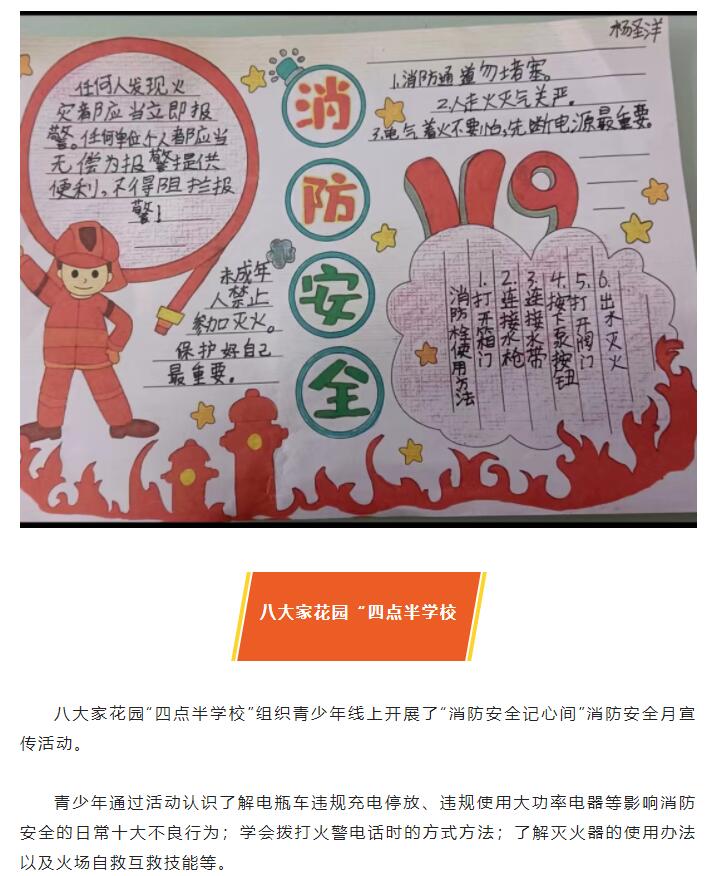 杨圣洋
任何人发现火
灾都应当立即报
警。任何单位个人都应当
无偿为报警提供
便利，不得阻拦报
警！
未成年
人禁止
参加灭火。
保护好自己
最重要。
消
防
安
全
1.消防通道勿堵塞。
2.人走火灭气关严。
3.电气着火不要怕，先断电源最重要。
119
消防栓使用方法
1.打开箱门
2.连接水枪
3.连接水带
4.按下泵按钮
5.打开阀门
6.出水灭火
八大家花园“四点半学校
八大家花园“四点半学校”组织青少年线上开展了“消防安全记心间”消防安全月宣
传活动。
青少年通过活动认识了解电瓶车违规充电停放、违规使用大功率电器等影响消防
安全的日常十大不良行为；学会拨打火警电话时的方式方法；了解灭火器的使用办法
以及火场自救互救技能等。